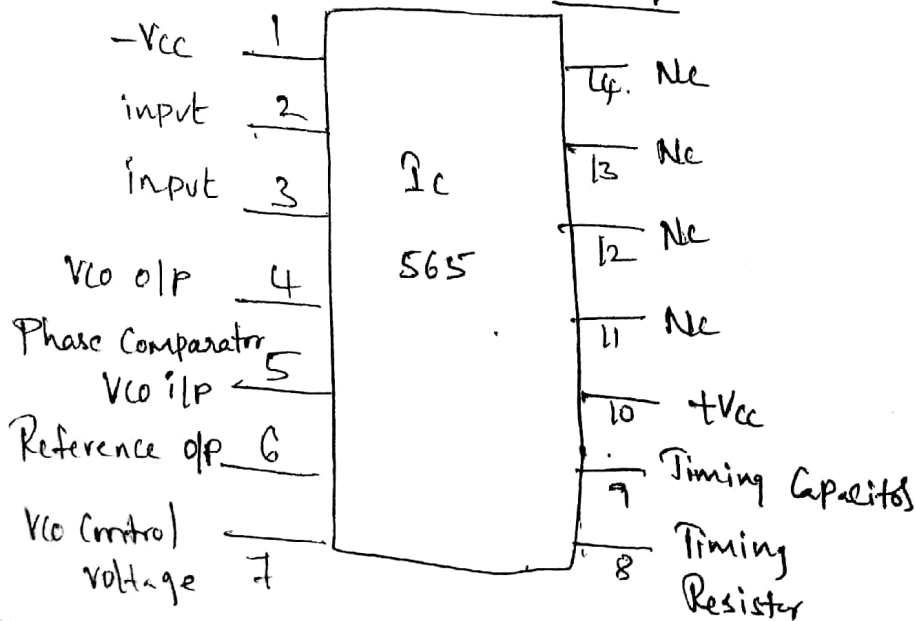 -Vcc 1
input 2
input 3
VCO o/p 4
Phase Comparator
VCO i/p 5
Reference o/p 6
VCO Control
voltage 7
Ic
565
14. Nc
13 Nc
12 Nc
11 Nc
10 +Vcc
9 Timing Capacitor
8 Timing
Resistor